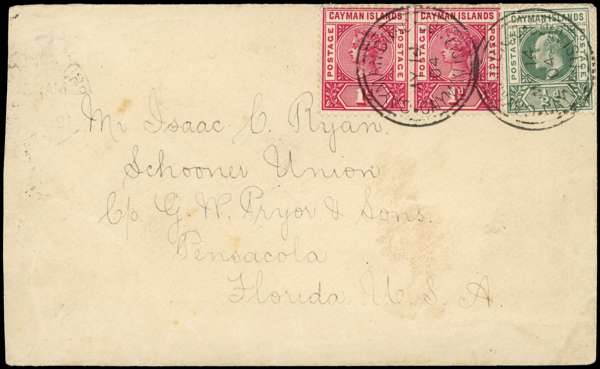 CAYMAN ISLANDS CAYMAN ISLANDS CAYMAN ISLANDS
POSTAGE POSTAGE POSTAGE POSTAGE POSTAGE POSTAGE
04
Mr Isaac C. Ryan.
Schooner Union
C/o G. W. Pryor & Sons.
Pensacola
Florida U. S. A.